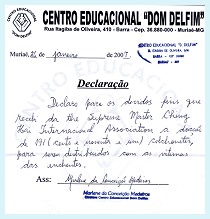 CENTRO EDUCACIONAL "DOM DELFIM"
Rua Itagiba de Oliveira, 410 - Barra - Cep. 36.880-000 - Muriaé-MG
Muriaé, 26 de janeiro de 2007.
CENTRO EDUCACIONAL "D. DELFIM"
BARRA
Declaração
Declaro para os devidos fins que
recebi da the Supreme Master Ching
Hai International Association a doação
de 191 (cento e noventa e um) colchonetes,
para serem distribuídos com as vítimas
das enchentes.
Ass: Marlene da Conceição Medeiros
Marlene da Conceição Medeiros